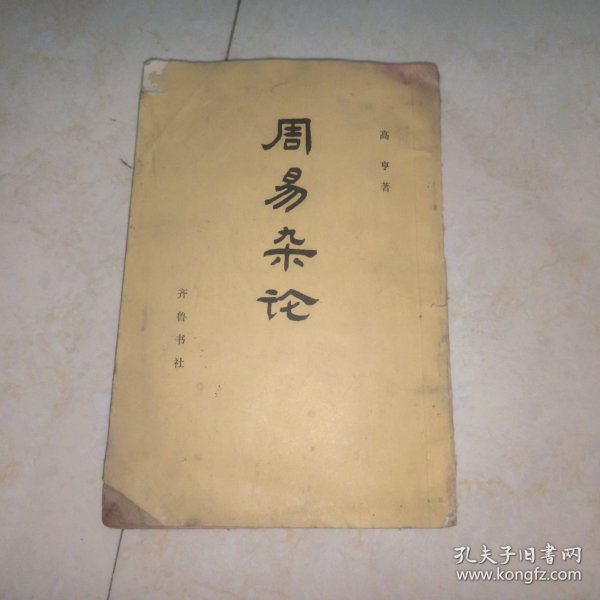 高亨著
周易杂论
齐鲁书社
孔夫子旧书网
www.kongfz.com